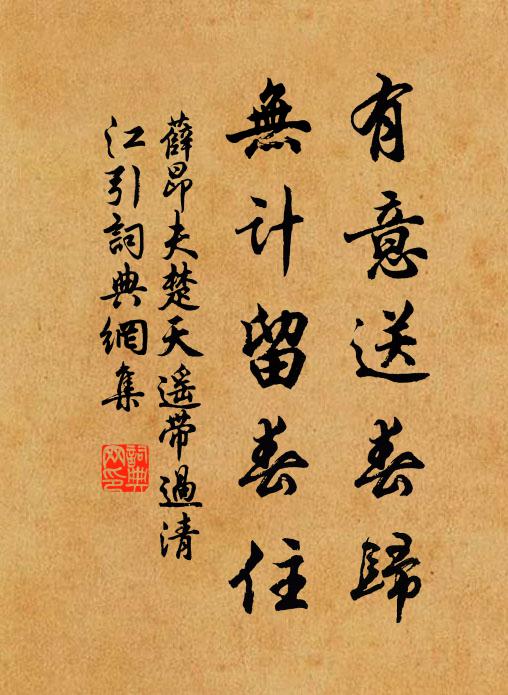 有意送春歸
無計留春住
薛昂夫楚天遥帶過清
江引詞典網集
詞典
网印